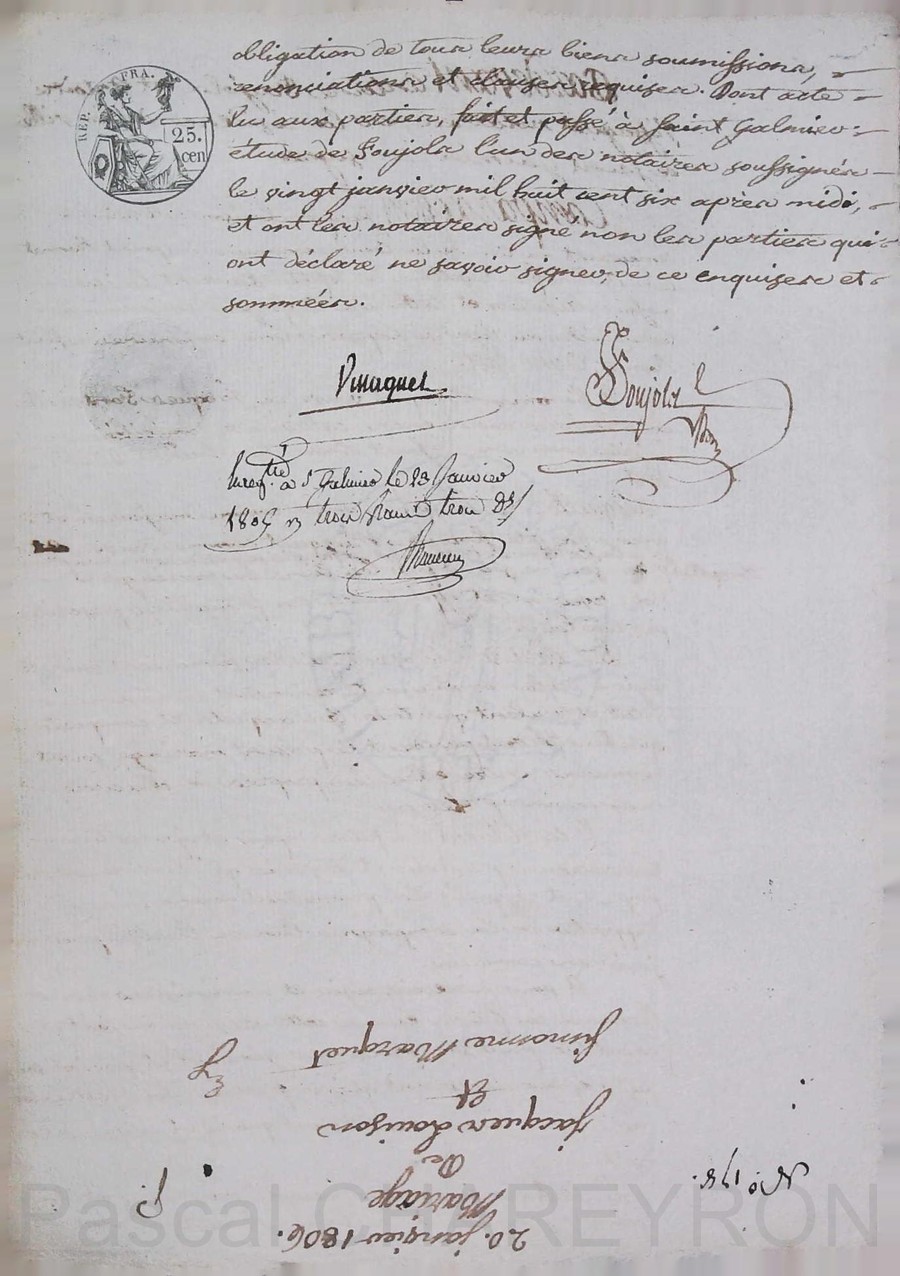 REP. FRA.
25.
cen
obligation de tous leurs biens soumissions,
renonciations et clauses requises. Dont acte
lu aux parties, fait et passé à Saint Galmier
étude de Soujols l'un des notaires soussignés
le vingt janvier mil huit cent six après midi,
et ont les notaires signé non les parties qui
ont déclaré ne savoir signer, de ce enquises et
sommées.
Soujols
à St Galmier le 23 Janvier
trois francs trois
20. janvier 1806.
Mariage
De
Jacques Louison
Et
Simonne Marquet
No 178.
Pascal CHAREYRON